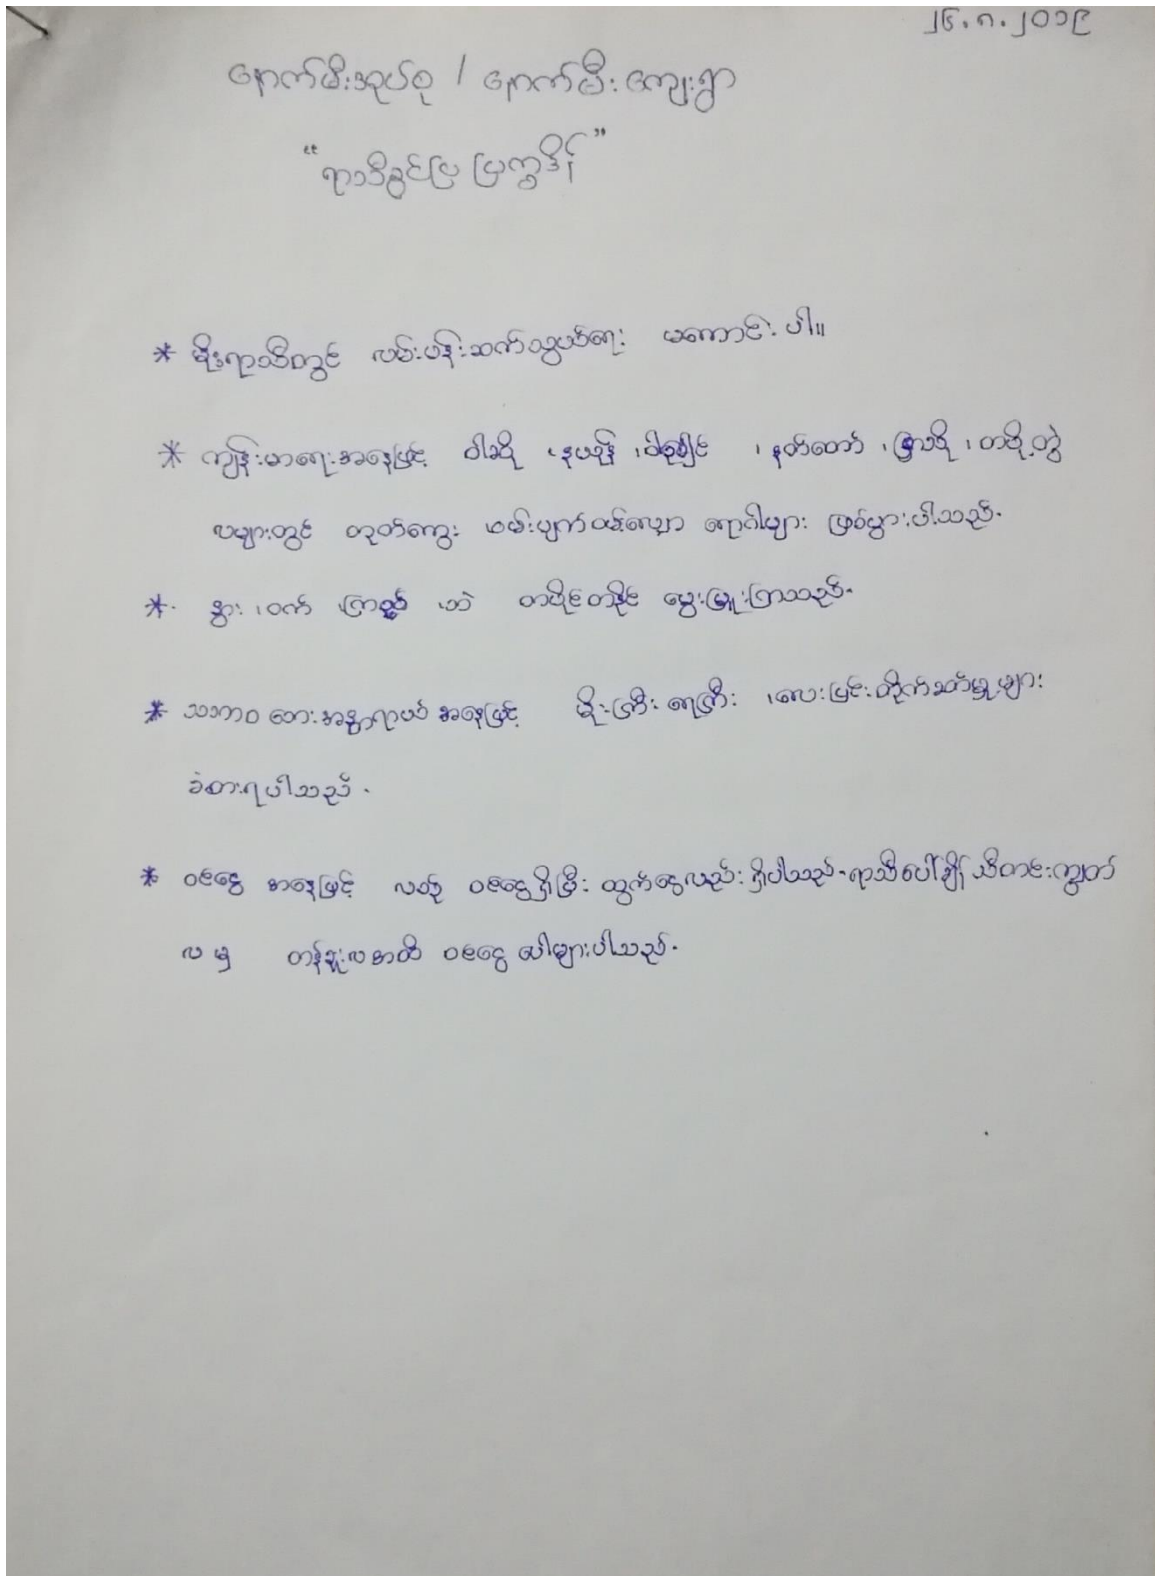 ၂၆.၈.၂၀၁၉
နောက်မီးအုပ်စု / နောက်မီးကျေးရွာ
"ရာသီခွင်ပြ ပြက္ခဒိန်"
* မိုးရာသီတွင် လမ်းပန်းဆက်သွယ်ရေး မကောင်းပါ။
* ကျန်းမာရေးအနေဖြင့် ဝါဆို ၊ နယုန် ၊ ဝါခေါင် ၊ နတ်တော် ၊ ပြာသို ၊ တပို့တွဲ
လများတွင် တုတ်ကွေး ဝမ်းပျက်ဝမ်းလျှော ရောဂါများ ဖြစ်ပွားပါသည်.
*. နွား ၊ ဝက် ၊ ကြက် ၊ ဘဲ တပိုင်တနိုင် မွေးမြူကြသည်.
* သဘာဝဘေးအန္တာရာယ် အနေဖြင့် မိုးကြီး ရေကြီး ၊ လေးပြင်းတိုက်ခတ်မှူများ
ခံစားရပါသည်.
* ဝင်ငွေ အနေဖြင့် လစဉ် ဝင်ငွေရှိပြီး ထွက်ငွေလည်းရှိပါသည်. ရာသီပေါ်ချိန် သီတင်းကျွတ်
လ မှ တန်ခူးလအထိ ဝင်ငွေ ပေါများပါသည်.